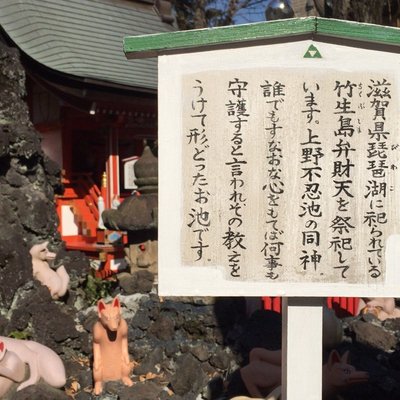 滋賀県琵琶湖に祀られている
竹生島弁財天を祭祀して
います。上野不忍池の同神
誰でもすなおな心をもてば何事も
守護すると言われその教えを
うけて形どったお池です